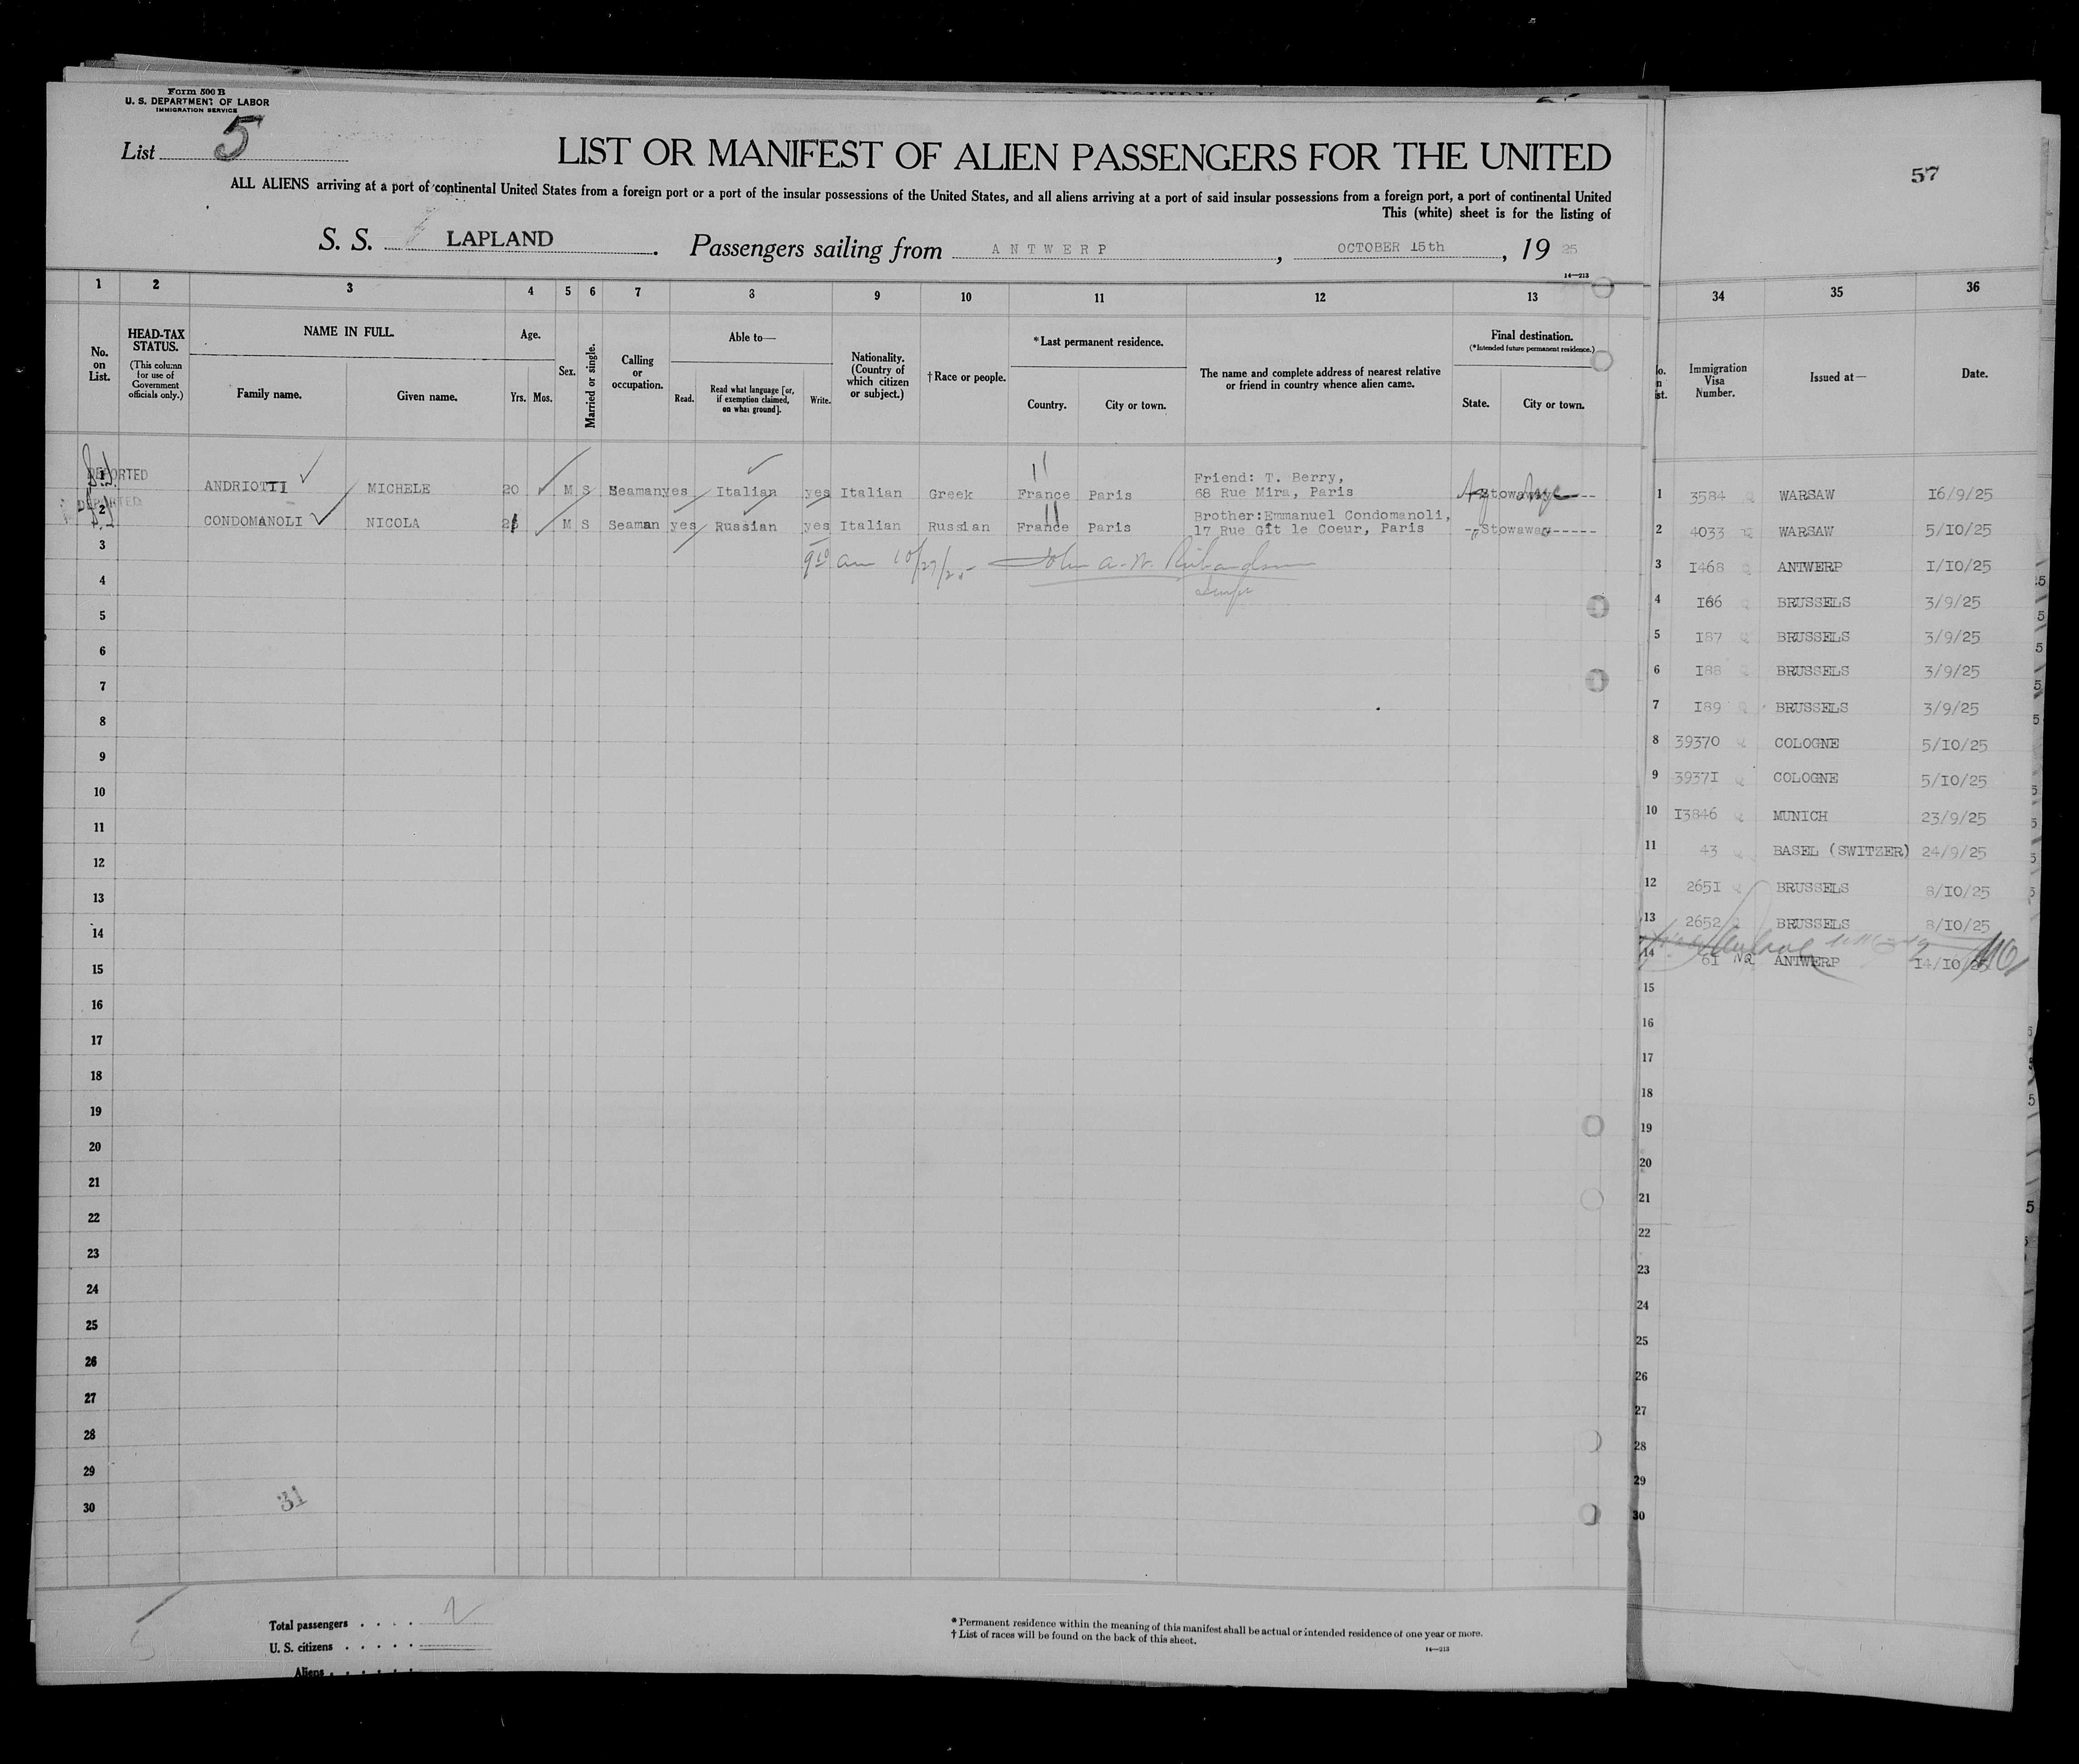 Form 500 B
U. S. DEPARTMENT OF LABOR
IMMIGRATION SERVICE
List 5
LIST OR MANIFEST OF ALIEN PASSENGERS FOR THE UNITED
ALL ALIENS arriving at a port of continental United States from a foreign port or a port of the insular possessions of the United States, and all aliens arriving at a port of said insular possessions from a foreign port, a port of continental United
This (white) sheet is for the listing of
S. S. LAPLAND. Passengers sailing from ANTWERP, OCTOBER 15th, 19 25
14—213
1 2 3 4 5 6 7 8 9 10 11 12 13
No. on List.
HEAD-TAX STATUS.
(This column for use of Government officials only.)
NAME IN FULL.
Family name. Given name.
Age.
Yrs. Mos.
Sex.
Married or single.
Calling or occupation.
Able to—
Read. Read what language [or, if exemption claimed, on what ground]. Write.
Nationality. (Country of which citizen or subject.)
†Race or people.
*Last permanent residence.
Country. City or town.
The name and complete address of nearest relative or friend in country whence alien came.
Final destination.
(*Intended future permanent residence.)
State. City or town.
DEPORTED
1 ANDRIOTTI MICHELE 20 M S Seaman yes Italian yes Italian Greek France Paris Friend: T. Berry, 68 Rue Mira, Paris Stowaway
DEPORTED
2 CONDOMANOLI NICOLA M S Seaman yes Russian yes Italian Russian France Paris Brother: Emmanuel Condomanoli, 17 Rue Gît le Coeur, Paris --Stowaway-----
3
9 10 am 10/27/25 John A. W. Richardson
4
5
6
7
8
9
10
11
12
13
14
15
16
17
18
19
20
21
22
23
24
25
26
27
28
29
30
31
Total passengers . . . . 2
U. S. citizens . . . . .
Aliens . . . . . .
* Permanent residence within the meaning of this manifest shall be actual or intended residence of one year or more.
† List of races will be found on the back of this sheet.
14—213
57
34 35 36
Immigration Visa Number. Issued at— Date.
1 3584 WARSAW 16/9/25
2 4033 WARSAW 5/10/25
3 1468 ANTWERP 1/10/25
4 186 BRUSSELS 3/9/25
5 187 BRUSSELS 3/9/25
6 188 BRUSSELS 3/9/25
7 189 BRUSSELS 3/9/25
8 39370 COLOGNE 5/10/25
9 39371 COLOGNE 5/10/25
10 13846 MUNICH 23/9/25
11 43 BASEL (SWITZER) 24/9/25
12 2651 BRUSSELS 8/10/25
13 2652 BRUSSELS 8/10/25
14 61 NQ ANTWERP 14/10/25
15
16
17
18
19
20
21
22
23
24
25
26
27
28
29
30